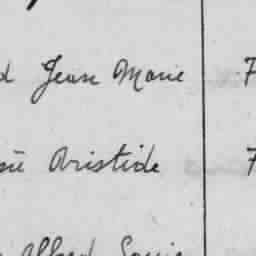 d Jean Marie F
sü Aristide F
Alfred Louis